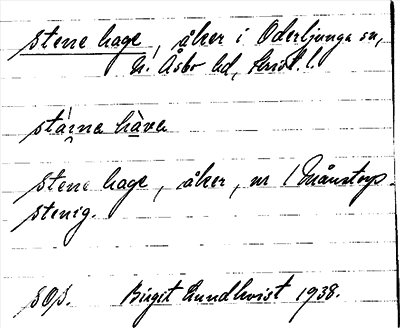 stene hage, åker i Oderljunga sn,
N. Åsbo hd, Krist. l.
stá̤ina hàva
stene hage, åker, nr 1 Månstorp.
stenig.
SOS. Birgit Lundkvist 1938.